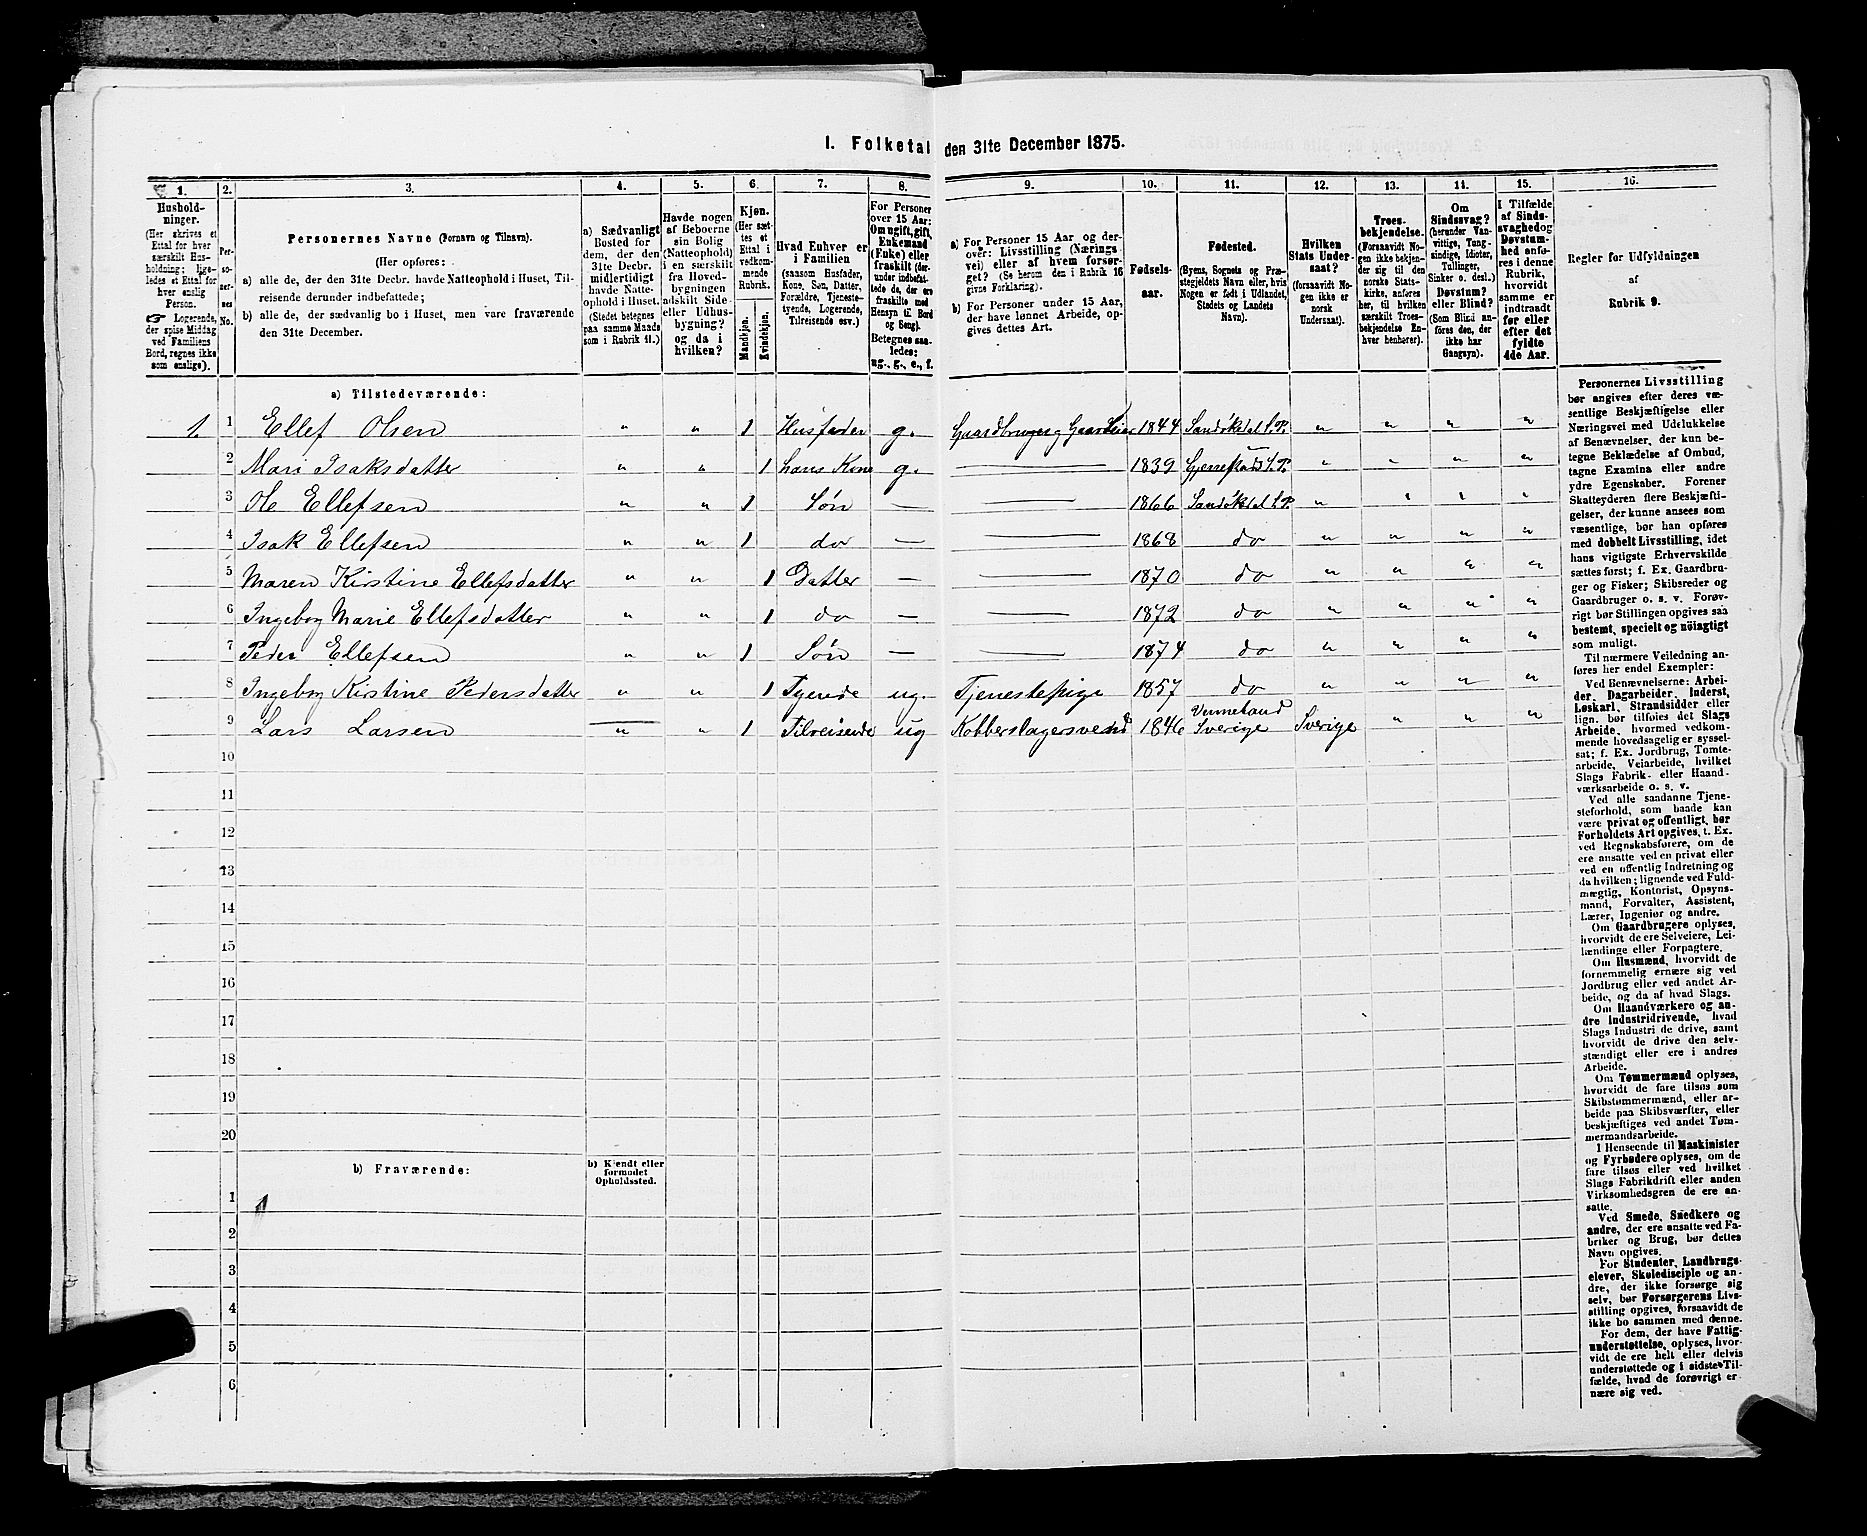 1. Folketal den 31te December 1875.
1. 2. 3. 4. 5. 6. 7. 8. 9. 10. 11. 12. 13. 14. 15. 16.
Hushold-
ninger.
(Her skrives et
Ettal for hver
særskilt Hus-
holdning; lige-
ledes et Ettal for
hver enslig
Person.
☞ Logerende,
der spise Middag
ved Familiens
Bord, regnes ikke
som enslige).
Per-
so-
ner-
nes
No.
Personernes Navne (Fornavn og Tilnavn).
(Her opføres:
a) alle de, der den 31te Decbr. havde Natteophold i Huset, Til-
reisende derunder indbefattede;
b) alle de, der sædvanlig bo i Huset, men vare fraværende
den 31te December.
a) Sædvanligt
Bosted for
dem, der den
31te Decbr.
midlertidigt
havde Natte-
ophold i Huset.
(Stedet betegnes
paa samme Maade
som i Rubrik 11.)
Havde nogen
af Beboerne
sin Bolig
(Natteophold)
i en særskilt
fra Hoved-
bygningen
adskilt Side-
eller Udhus-
bygning?
og da i
hvilken?
Kjøn.
(Her sæt-
tes et
Ettal i
vedkom-
mende
Rubrik.
Mandkjøn.
Kvindekjøn.
Hvad Enhver er
i Familien
(saasom Husfader,
Kone, Søn, Datter,
Forældre, Tjeneste-
tyende, Logerende,
Tilreisende osv.)
For Personer
over 15 Aar:
Om ugift, gift,
Enkemand
(Enke) eller
fraskilt (der-
under indbefat-
tede de, der ere
fraskilte med
Hensyn til Bord
og Seng).
Betegnes saa-
ledes:
ug., g., e., f.
a) For Personer 15 Aar og der-
over: Livsstilling (Nærings-
vei) eller af hvem forsør-
get? (Se herom den i Rubrik 16
givne Forklaring).
b) For Personer under 15 Aar,
der have lønnet Arbeide, op-
gives dettes Art.
Fødsels-
aar.
Fødested.
(Byens, Sognets og Præ-
stegjeldets Navn eller, hvis
Nogen er født i Udlandet,
Stedets og Landets
Navn).
Hvilken
Stats Under-
saat?
(forsaavidt No-
gen ikke er
norsk
Undersaat).
Troes-
bekjendelse.
(Forsaavidt No-
gen ikke bekjen-
der sig til den
norske Stats-
kirke, anføres
her, til hvilken
særskilt Troes-
bekjendelse En-
hver henhører).
Om
Sindssvag?
(herunder Van-
vittige, Tung-
sindige, Idioter,
Tullinger,
Sinker o. desl.)
Døvstum?
eller Blind?
(Som Blind an-
føres den, der
ikke har
Gangsyn).
I Tilfælde
af Sinds-
svaghed og
Døvstum-
hed anfø-
res i denne
Rubrik,
hvorvidt
samme er
indtraadt
før eller
efter det
fyldte
4de Aar.
Regler for Udfyldningen
af
Rubrik 9.
a) Tilstedeværende:
1. 1 Ellef Olsen " " 1 Husfader g. Gaardbruger g Gaardeier 1844 Sandøkdal S. P. " " " "
2 Mari Isaksdatter " " 1 hans Kone g. — 1839 Gjerrestads S. P. " " " "
3 Ole Ellefsen " " 1 Søn — — 1866 Sandøkdal S. P. " " " "
4 Isak Ellefsen " " 1 do — — 1868 do " " " "
5 Maren Kirstine Ellefsdatter " " 1 Datter — — 1870 do " " " "
6 Ingebog Marie Ellefsdatter " " 1 do — — 1872 do " " " "
7 Peder Ellefsen " " 1 Søn — — 1874 do " " " "
8 Ingebog Kirstine Pedersdatter " " 1 Tyende ug. Tjenestepige 1857 do " " " "
9 Lars Larsen " " 1 Tilreisende ug Kobberslagersvend 1846 Vermeland Sverige Sverige " " "
10
11
12
13
14
15
16
17
18
19
20
b) Fraværende:
b) Kjendt eller
formodet
Opholdssted.
1
2
3
4
5
6
Personernes Livsstilling
bør angives efter deres væ-
sentlige Beskjæftigelse eller
Næringsvei med Udelukkelse
af Benævnelser, der kun be-
tegne Beklædelse af Ombud,
tagne Examina eller andre
ydre Egenskaber. Forener
Skatteyderen flere Beskjæfti-
gelser, der kunne ansees som
væsentlige, bør han opføres
med dobbelt Livsstilling, idet
hans vigtigste Erhvervskilde
sættes først; f. Ex. Gaardbru-
ger og Fisker; Skibsreder og
Gaardbruger o. s. v. Forøv-
rigt bør Stillingen opgives saa
bestemt, specielt og nöiagtigt
som muligt.
Til nærmere Veiledning an-
føres her endel Exempler:
Ved Benævnelserne: Arbei-
der, Dagarbeider, Inderst,
Løskarl, Strandsidder eller
lign. bør tilføies det Slags
Arbeide, hvormed vedkom-
mende hovedsagelig er syssel-
sat; f. Ex. Jordbrug, Tomte-
arbeide, Veiarbeide, hvilket
Slags Fabrik- eller Haand-
værksarbeide o. s. v.
Ved alle saadanne Tjene-
steforhold, som baade kan
være privat og offentligt, bør
Forholdets Art opgives, t. Ex.
ved Regnskabsførere, om de
ere ansatte ved en privat eller
ved en offentlig Indretning og
da hvilken; lignende ved Fuld-
mægtig, Kontorist, Opsyns-
mand, Forvalter, Assistent,
Lærer, Ingeniør og andre.
Om Gaardbrugere oplyses,
hvorvidt de ere Selveiere, Lei-
lændinge eller Forpagtere.
Om Husmænd, hvorvidt de
fornemmelig ernære sig ved
Jordbrug eller ved andet Ar-
beide, og da af hvad Slags.
Om Haandværkere og an-
dre Industridrivende, hvad
Slags Industri de drive, samt
hvorvidt de drive den selv-
stændigt eller ere i andres
Arbeide.
Om Tømmermænd oplyses,
hvorvidt de fare tilsøs som
Skibstømmermænd, eller ar-
beide paa Skibsværfter, eller
beskjæftiges ved andet Tøm-
mermandsarbeide.
I Henseende til Maskinister
og Fyrbødere oplyses, om de
fare tilsøs eller ved hvilket
Slags Fabrikdrift eller anden
Virksomhedsgren de ere an-
satte.
Ved Smede, Snedkere og
andre, der ere ansatte ved Fa-
briker og Brug, bør dettes
Navn opgives.
For Studenter, Landbrugs-
elever, Skoledisciple og an-
dre, der ikke forsørge sig
selv, bør Forsørgerens Livs-
stilling opgives, forsaavidt de
ikke bo sammen med denne.
For dem, der have Fattig-
understøttelse, oplyses, hvor-
vidt de ere helt eller delvis
understøttede og i sidste Til-
fælde, hvad de forøvrigt er-
nære sig ved.